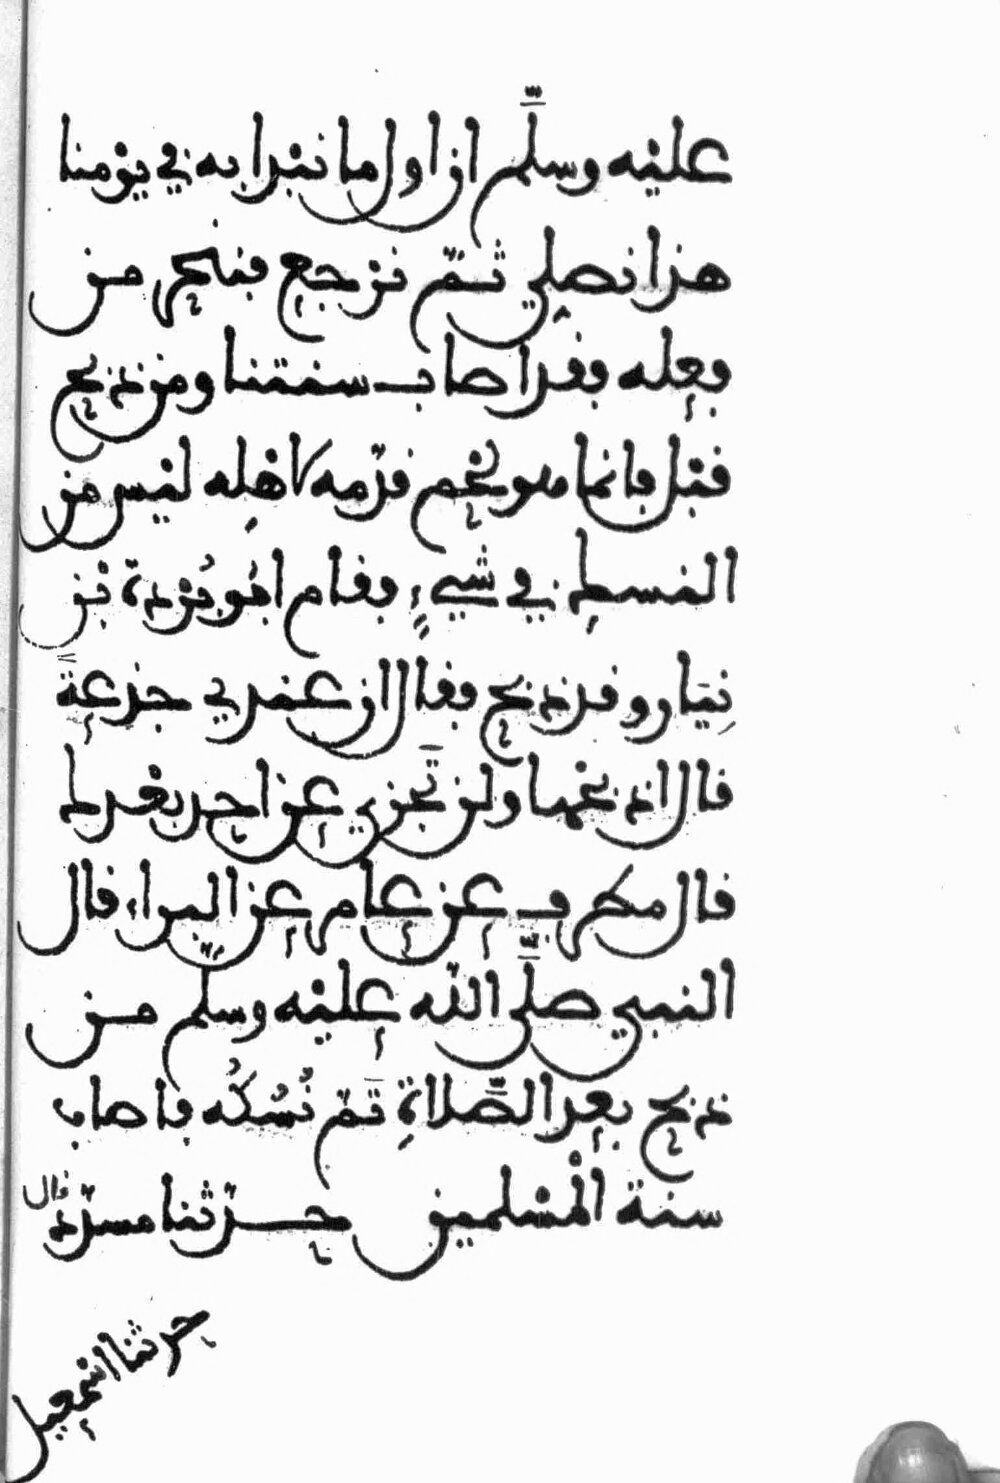 عليه وسلم ان اول ما نبدا به في يومنا
هذا نصلي ثم نرجع فننحر من
فعله فقد اصاب سنتنا ومن ذبح
قبل فانما هو لحم قدمه لاهله ليس من
النسك في شيء فقام ابو بردة بن
نيار وقد ذبح فقال ان عندي جذعة
قال اذبحها ولن تجزي عن احد بعدك
قال مطرف عن عامر عن البراء قال
النبي صلى الله عليه وسلم من
ذبح بعد الصلاة تم نُسُكُه فاصاب
سنة المسلمين حدثنا مسدد قال
حدثنا اسمعيل